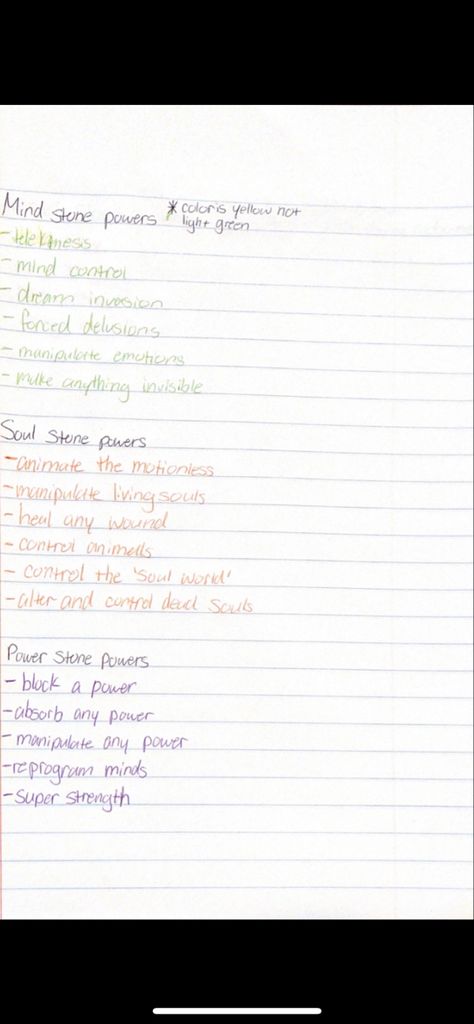 Mind stone powers * color is yellow not
light green
- telekinesis
- mind control
- dream invasion
- forced delusions
- manipulate emotions
- make anything invisible
Soul Stone powers
- animate the motionless
- manipulate living souls
- heal any wound
- control animells
- control the 'soul world'
- alter and control dead souls
Power Stone powers
- block a power
- absorb any power
- manipulate any power
- reprogram minds
- super strength